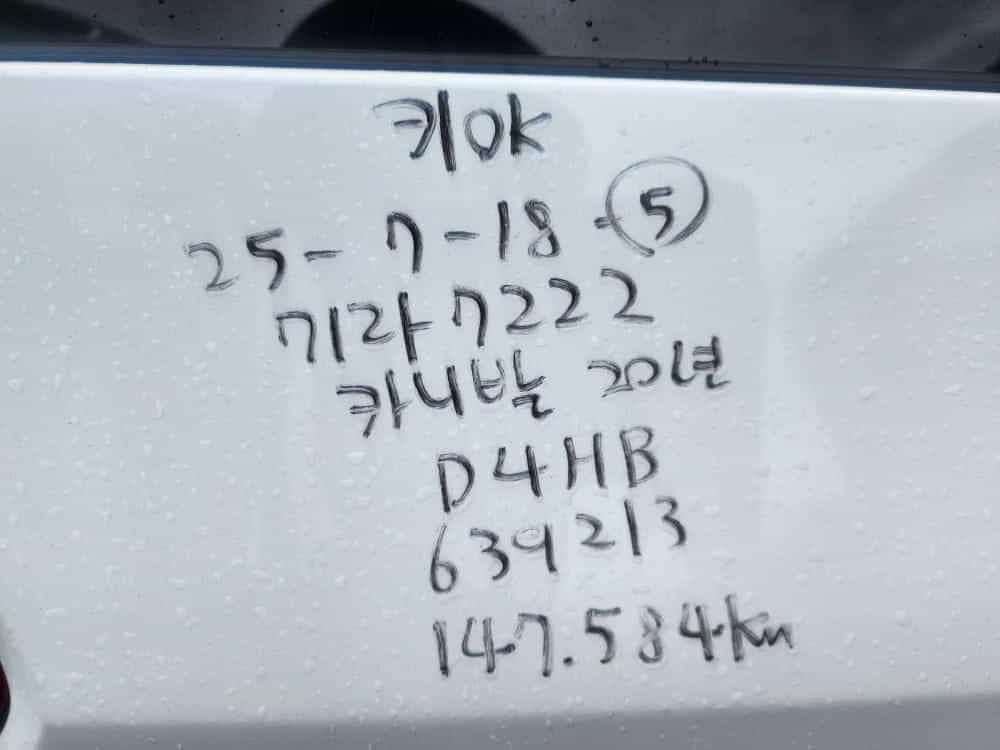 키OK
25-7-18-⑤
71라7222
카니발 20년
D4HB
639213
147.584km